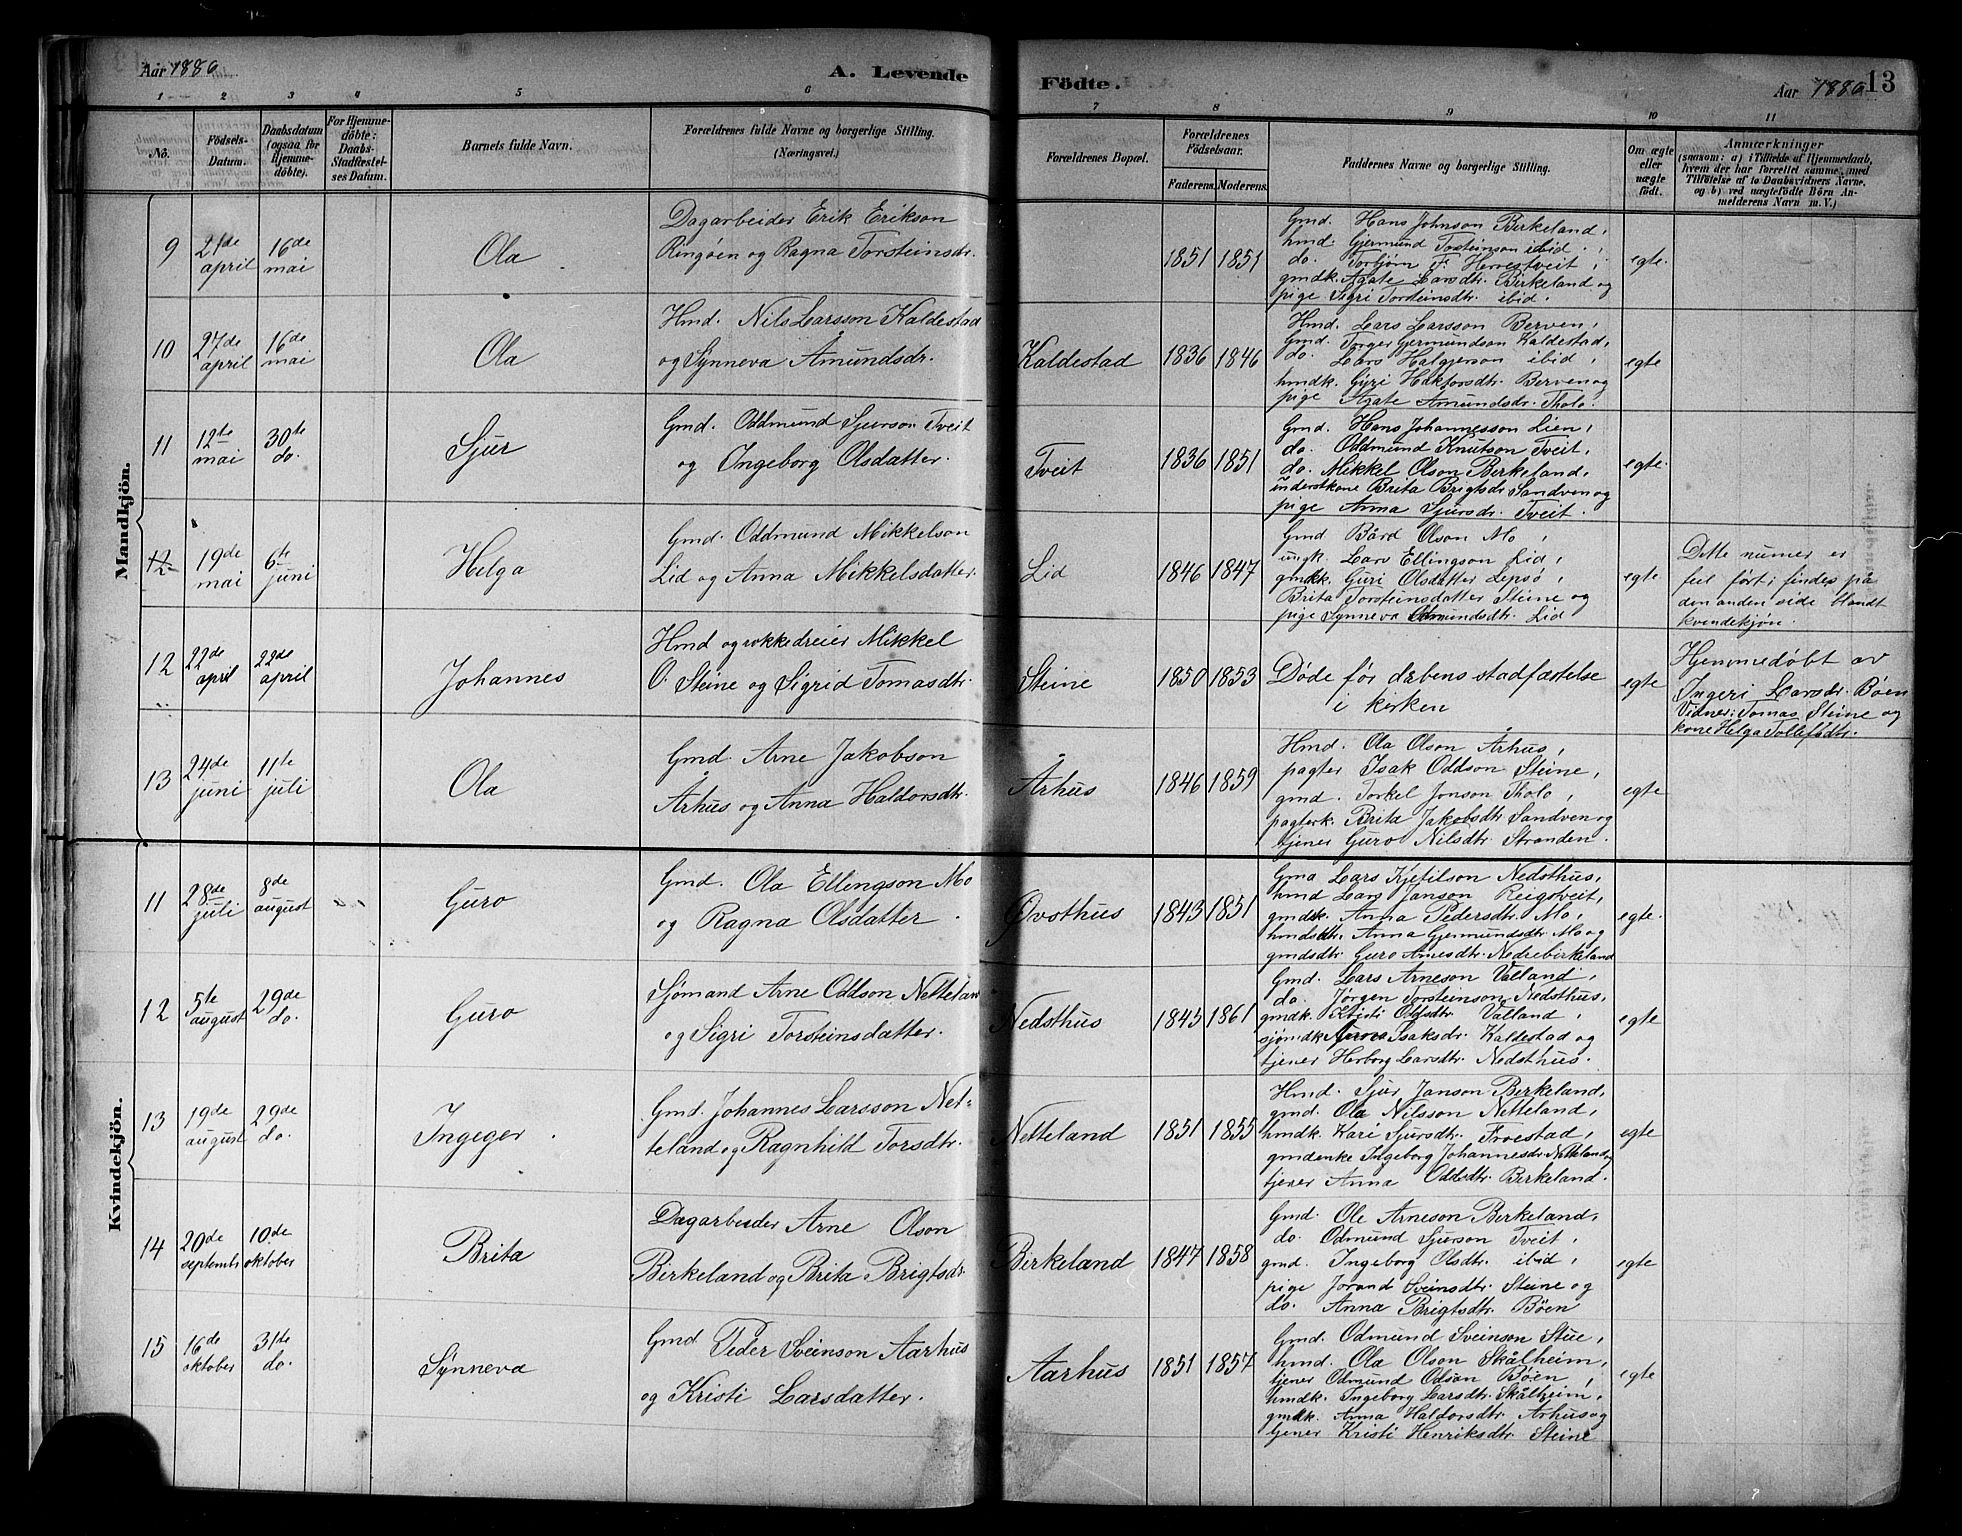 Aar 1886
A. Levende
Födte.
Aar 1886
13
1 2 3 4 5 6 7 8 9 10 11
No.
Födsels-
Datum.
Daabsdatum
(ogsaa for
Hjemme-
döbte).
For Hjemme-
döbte:
Daabs-
Stadfæstel-
ses Datum.
Barnets fulde Navn.
Forældrenes fulde Navne og borgerlige Stilling.
(Næringsvei.)
Forældrenes Bopæl.
Forældrenes
Födselsaar.
Faderens. Moderens.
Faddernes Navne og borgerlige Stilling.
Om ægte
eller
uægte
födt.
Anmærkninger
(saasom: a) i Tilfælde af Hjemmedaab,
hvem der har forrettet samme, med
Tilföielse af to Daabsvidners Navne,
og b) ved uægtefödte Börn An-
melderens Navn m. V.)
Mandkjön.
9
21de
april
16de
mai
Ola
Dagarbeider Erik Erikson
Ringøen og Ragna Torsteinsdr.
1851 1851
Gmd. Hans Johnson Birkeland,
hmd. Gjermund Torsteinson ibid.
do. Torbjørn T. Herregtveit,
gmdk. Agate Larsdtr. Birkeland og
pige Sigri Torsteinsdtr. ibid.
egte.
10
27de
april
16de
mai
Ola
Hmd. Nils Larsson Kaldestad
og Synneva Åmundsdr.
Kaldestad
1836 1846
Hmd. Lars Larsson Berven,
Gmd. Torger Germundson Kaldestad,
do. Lars Halgerson ibid,
hmdk. Gyri Hakforsdtr. Berven og
pige Agate Amundsdr. Tholo.
egte
11
12te
mai
30te
do.
Sjur
Gmd. Oddmund Sjurson Tveit
og Ingeborg Olsdatter.
Tveit
1836 1851
Gmd. Hans Johannesson Lien,
do. Oddmund Knutson Tveit,
do. Mikkel Olson Berkeland,
understkone Brita Brigtsdr Sandven og
pige Anna Sjursdr. Tveit.
egte.
12
19de
mai
6te
juni
Helga
Gmd. Oddmund Mikkelson
Lid og Anna Mikkelsdatter
Lid
1846 1847
Gmd Bård Olson Mo,
ungk. Lars Ellingson Lid,
gmdk. Guri Olsdatter Lepsø,
Brita Torsteinsdatter Steine og
pige Synneva Odmundsdtr. Lid
egte
Dette numer er
feil ført; findes på
den anden side blandt
kvendekjøn.
12
22de
april
22de
april
Johannes
Hmd og rokkedreier Mikkel
O. Steine og Sigrid Tomasdtr.
Steine
1850 1853
Døde før dæbens stadfæstelse
i kirken
egte
Hjemmedøbt av
Ingeri Larsdr. Bøen
Vidner: Tomas Steine og
kone Helga Tollefsdtr.
13
24de
juni
11te
juli
Ola
Gmd. Arne Jakobson
Århus og Anna Haldorsdtr.
Århus
1846 1859
Hmd. Ola Olson Århus,
pagter Isak Oddson Steine,
gmd. Torkel Jonson Tholo,
pagterk. Brita Jakobsdtr Sandven og
tjener Guro Nilsdtr Stranden.
egte
Kvindekjön.
11
28de
juli
8de
august
Guro
Gmd. Ola Ellingson Mo
og Ragna Olsdatter.
Øvsthus
1843 1851
Gmd Lars Kjetilson Nedsthus,
hmd Lars Janson Reigstveit,
gmdk. Anna Pedersdtr. Mo,
hmdsdtr. Anna Gjermundsdtr. Mo og
gmdsdtr. Guro Arnesdtr. Nedrebirkeland
egte.
12
5te
august
29de
do.
Guro
Sjømand Arne Oddson Netteland
og Sigri Torsteinsdatter.
Nedsthus
1845 1861
Gmd. Lars Arneson Valland,
do. Jørgen Torsteinson Nedsthus,
gmdk. Kristi Oldsdtr. Valland,
sjømdk. Isaksdr. Kaldestad og
tjener Herborg Larsdtr. Nedsthus.
egte
13
19de
august
29de
do.
Ingeger.
Gmd. Johannes Larsson Net-
teland og Ragnhild Torsdtr.
Netteland
1851 1855
Hmd. Sjur Janson Berkeland,
gmd. Ola Nilsson Netteland,
hmdk. Kari Sjursdtr. Froestad,
gmdenke Ingeborg Johannesdr. Netteland og
tjener Anna Oddsdtr. Birkeland.
egte
14
20de
septembr
10de
oktober
Brita
Dagarbeider Arne Olson
Birkeland og Brita Brigtsdr.
Birkeland
1847 1858
Gmd. Ole Arneson Berkeland,
do. Odmund Sjurson Tveit,
gmd. Ingeborg Olsdtr. ibid,
pige Jorand Sveinsdtr. Steine og
do. Anna Brigtsdtr. Bøen
egte
15
16de
oktober
31te
do.
Synneva
Gmd Peder Sveinson Aarhus
og Kristi Larsdatter.
Aarhus
1851 1857
Gmd. Odmund Sveinson Stue,
hmd. Ola Olson Skålheim,
tjener Odmund Odson Bøen,
hmdk. Ingeborg Larsdtr. Skålheim,
gmdk. Anna Haldorsdtr. Århus og
tjener Kristi Henriksdtr Steine
egte